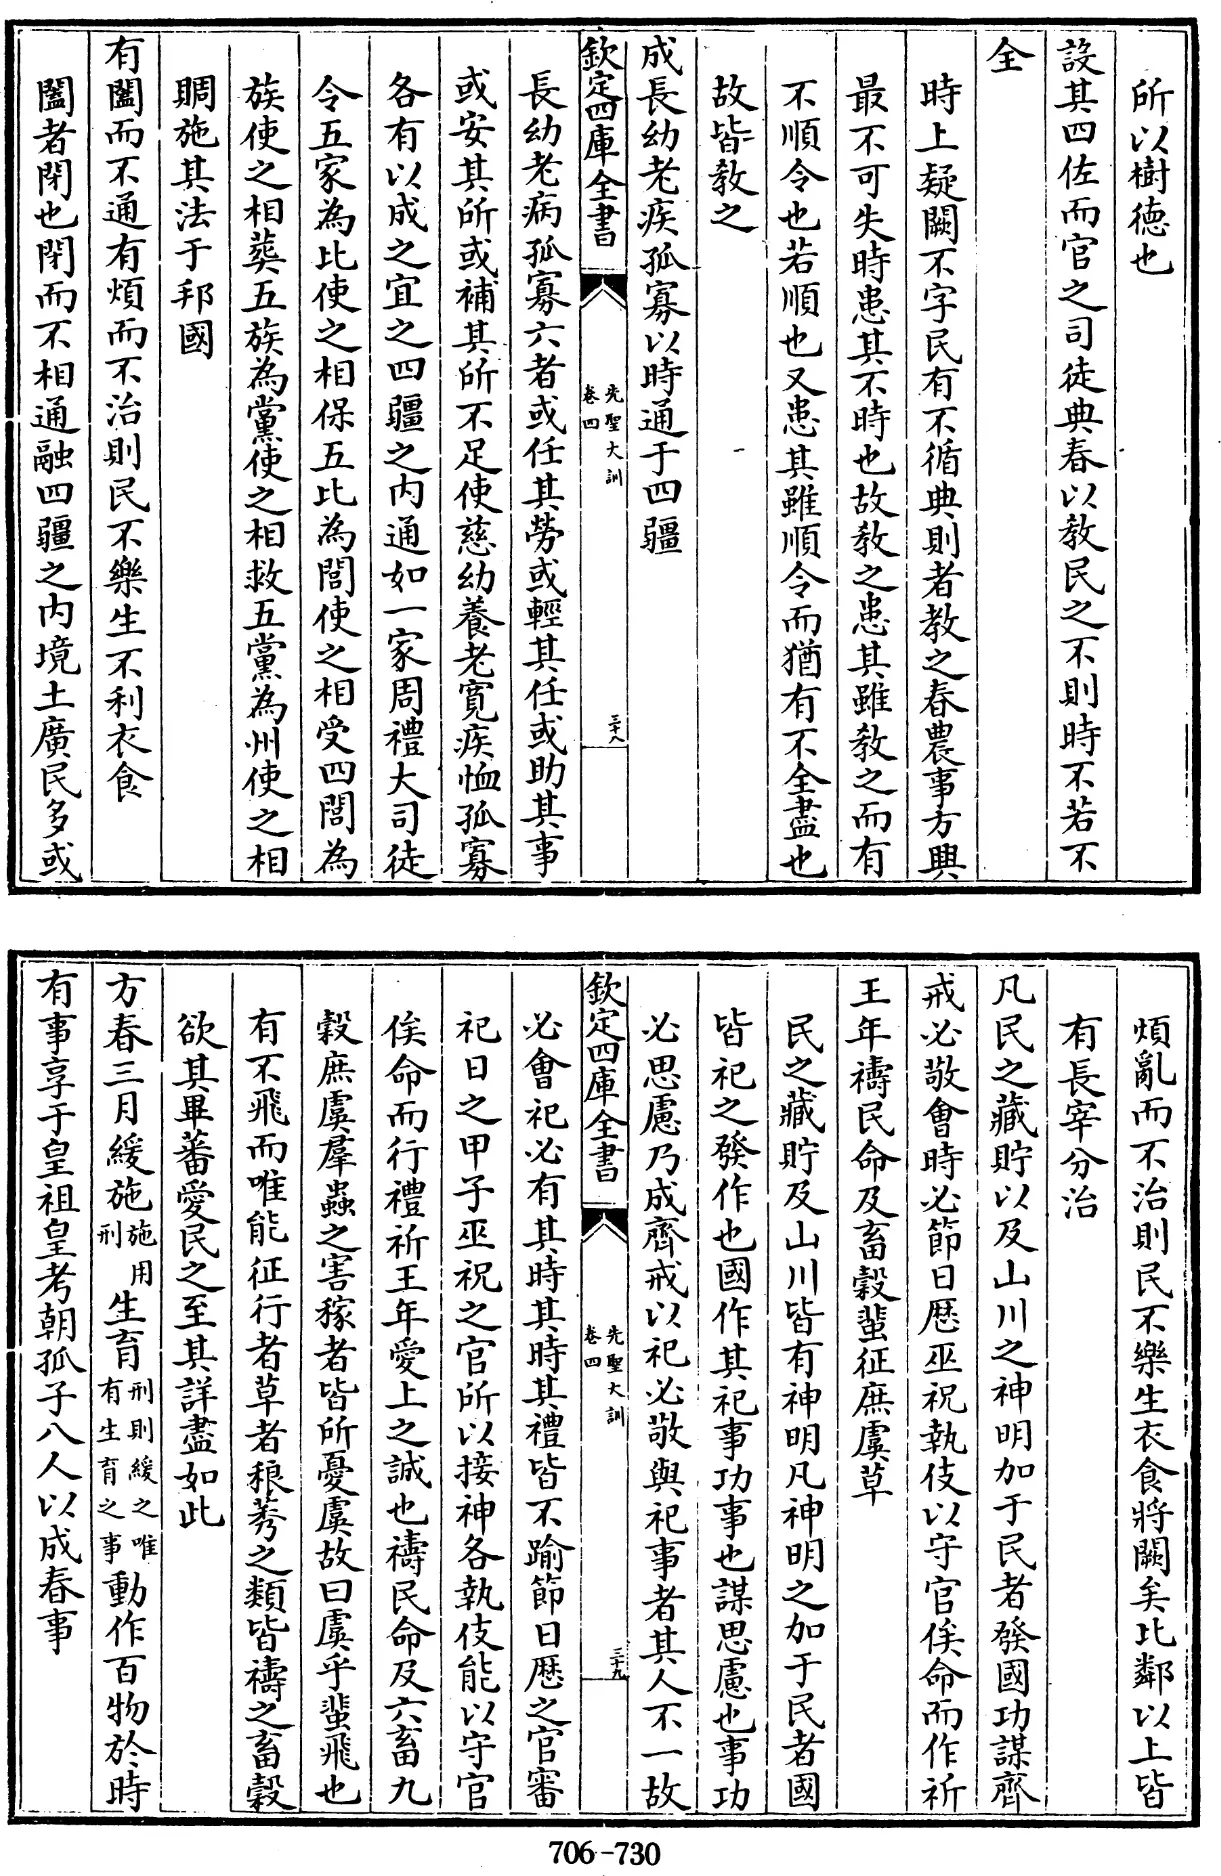 所以樹徳也
設其四佐而官之司徒典春以教民之不則時不若不
全
時上疑闕不字民有不循典則者教之春農事方興
最不可失時患其不時也故教之患其雖教之而有
不順令也若順也又患其雖順令而猶有不全盡也
故皆教之
成長幼老疾孤寡以時通于四疆
欽定四庫全書
先聖大訓
卷四
三十八
長幼老病孤寡六者或任其勞或輕其任或助其事
或安其所或補其所不足使慈幼養老寛疾恤孤寡
各有以成之宜之四疆之内通如一家周禮大司徒
令五家為比使之相保五比為閭使之相受四閭為
族使之相葬五族為黨使之相救五黨為州使之相
賙施其法于邦國
有闔而不通有煩而不治則民不樂生不利衣食
闔者閉也閉而不相通融四疆之内境土廣民多或
煩亂而不治則民不樂生衣食將闕矣比鄰以上皆
有長宰分治
凡民之藏貯以及山川之神明加于民者發國功謀齊
戒必敬會時必節日歴巫祝執伎以守官俟命而作祈
王年禱民命及畜穀蜚征庶虞草
民之藏貯及山川皆有神明凡神明之加于民者國
皆祀之發作也國作其祀事功事也謀思慮也事功
必思慮乃成齊戒以祀必敬與祀事者其人不一故
欽定四庫全書
先聖大訓
卷四
三十九
必會祀必有其時其時其禮皆不踰節日歴之官審
祀日之甲子巫祝之官所以接神各執伎能以守官
俟命而行禮祈王年愛上之誠也禱民命及六畜九
穀庶虞羣蟲之害稼者皆所憂虞故曰虞乎蜚飛也
有不飛而唯能征行者草者稂莠之類皆禱之畜穀
欲其畢蕃愛民之至其詳盡如此
方春三月緩施施用刑生育刑則緩之唯有生育之事動作百物於時
有事享于皇祖皇考朝孤子八人以成春事
706-730